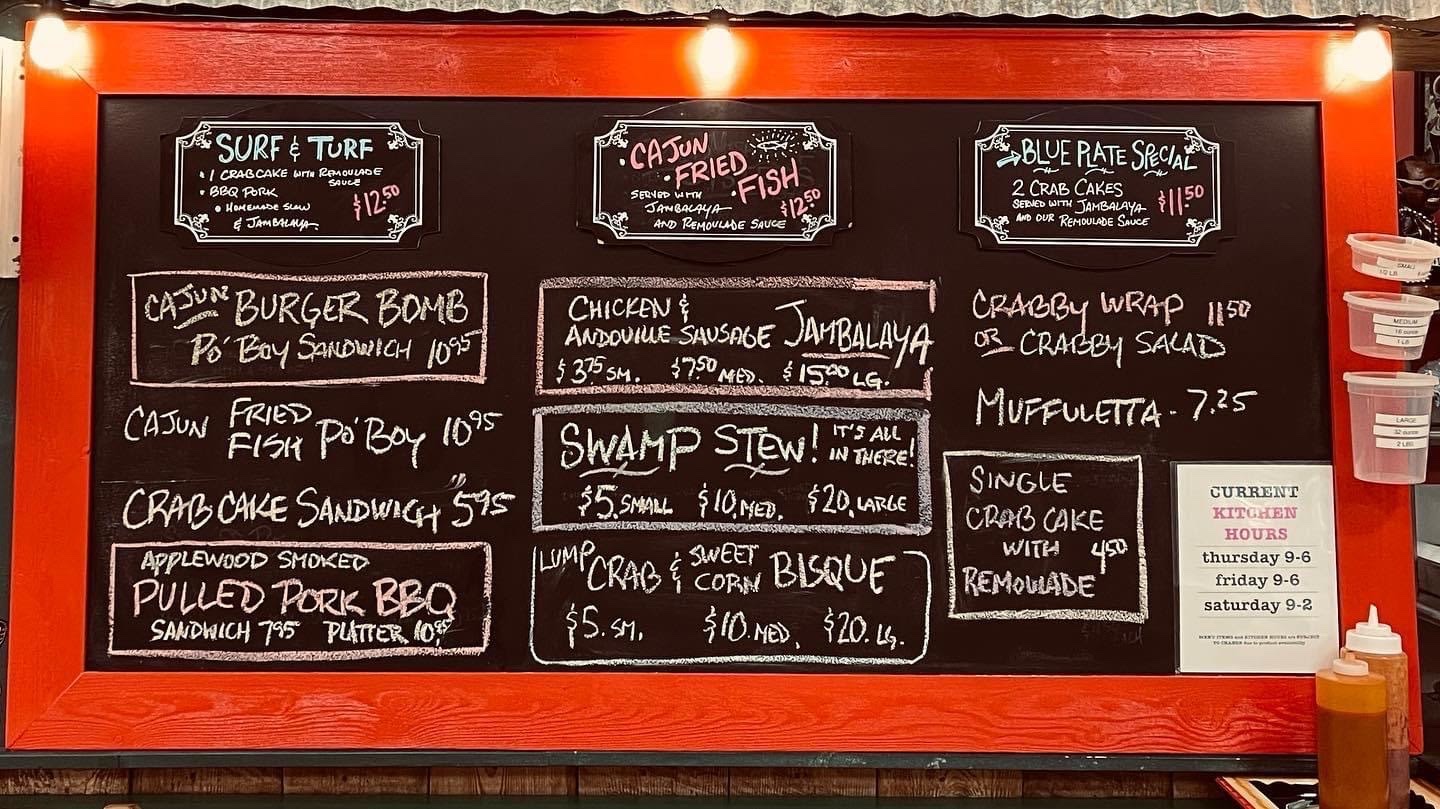 SURF & TURF
• 1 CRABCAKE WITH REMOULADE
SAUCE
• BBQ PORK
• HOMEMADE SLAW
& JAMBALAYA
$12.50
CAJUN BURGER BOMB
PO'BOY SANDWICH 10.95
CAJUN FRIED
FISH PO'BOY 10.95
CRAB CAKE SANDWICH 5.95
APPLEWOOD SMOKED
PULLED PORK BBQ
SANDWICH 7.95 PLATTER 10.95
• CAJUN
• FRIED
• FISH
SERVED WITH
JAMBALAYA
AND REMOULADE SAUCE
$12.50
CHICKEN &
ANDOUILLE SAUSAGE JAMBALAYA
$3.75 SM. $7.50 MED. $15.00 LG.
SWAMP STEW! IT'S ALL
IN THERE!
$5. SMALL $10. MED. $20. LARGE
LUMP CRAB & SWEET
CORN BISQUE
$5. SM. $10. MED. $20. LG.
→BLUE PLATE SPECIAL
2 CRAB CAKES
SERVED WITH JAMBALAYA
AND OUR REMOULADE SAUCE
$11.50
CRABBY WRAP 11.50
OR CRABBY SALAD
MUFFULETTA - 7.25
SINGLE
CRAB CAKE
WITH 4.50
REMOULADE
CURRENT
KITCHEN
HOURS
thursday 9-6
friday 9-6
saturday 9-2
MENU ITEMS and KITCHEN HOURS are SUBJECT
TO CHANGE due to product availability
SMALL
1/2 LB
MEDIUM
16 ounce
1 LB
LARGE
32 ounce
2 LBS